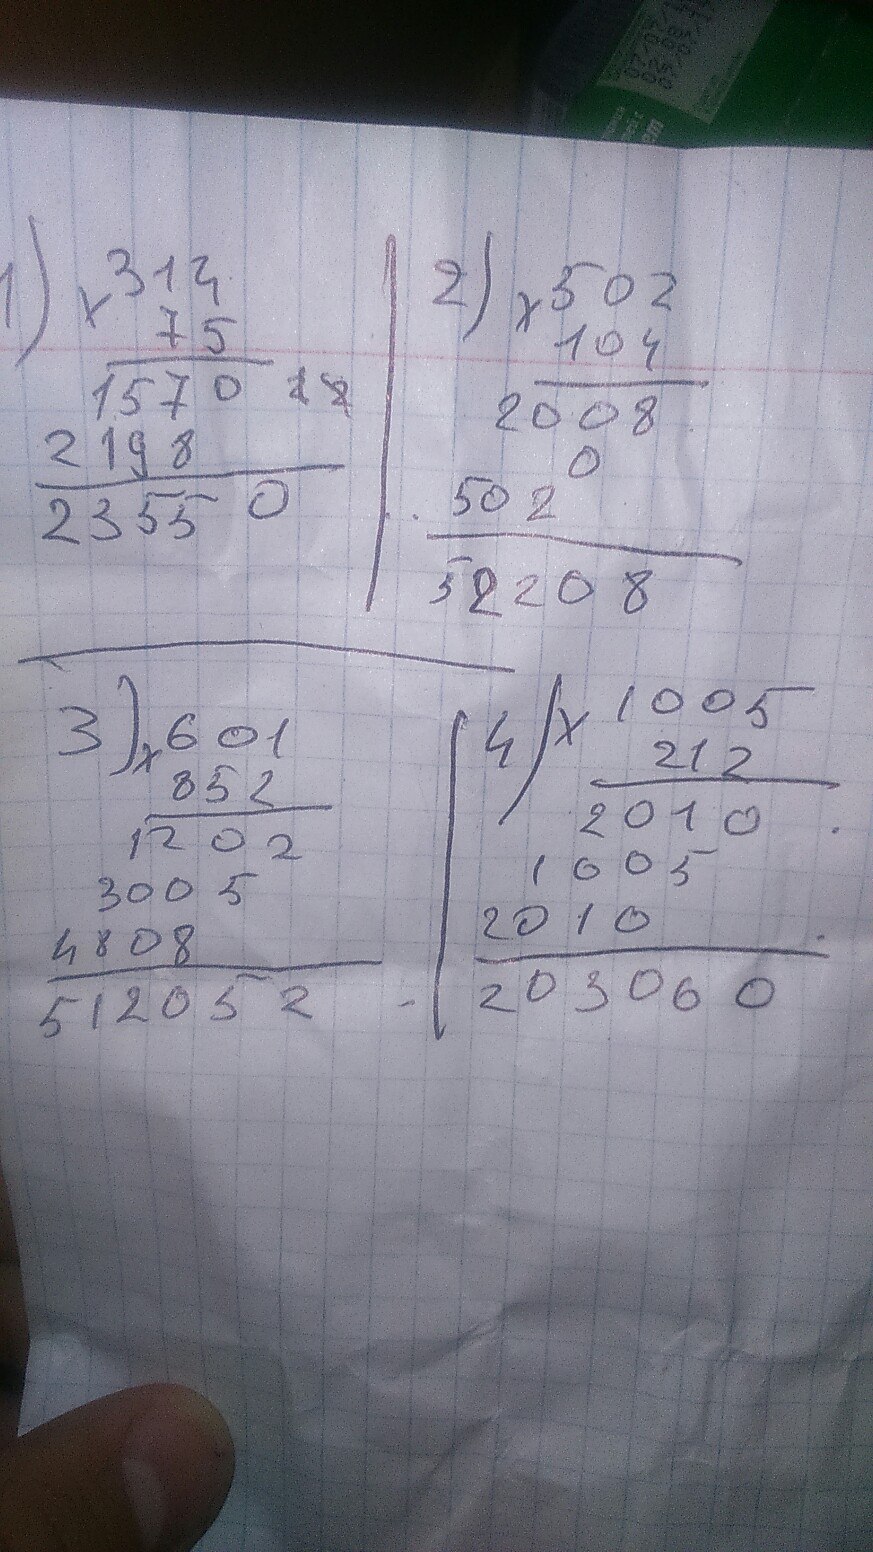 1) x 314
75
1570
2198
23550
2) x 502
104
2008
0
502
52208
3) x 601
852
1202
3005
4808
512052
4) x 1005
212
2010
1005
2010
203060